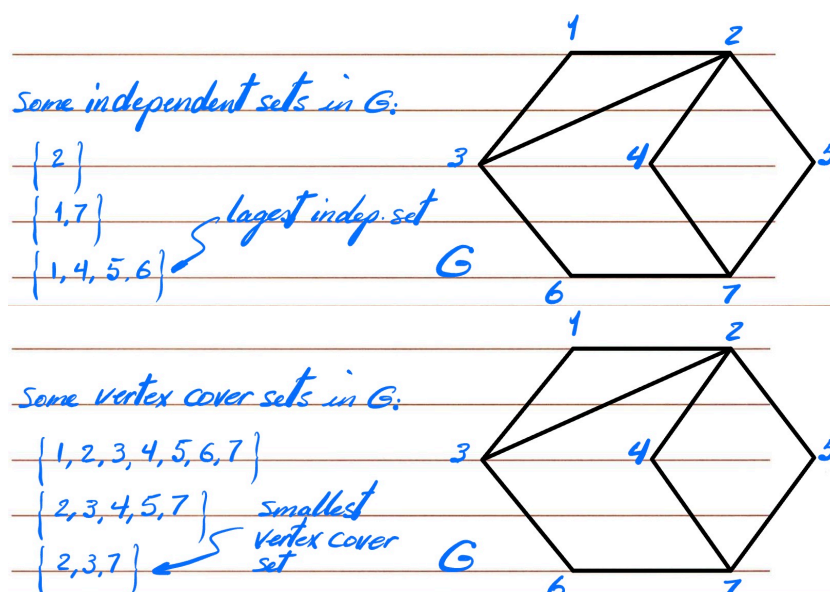 1 2
some independent sets in G:
{2}
3 4 5
{1,7}
lagest indep. set
{1, 4, 5, 6}
G
6 7
1 2
some vertex cover sets in G:
{1, 2, 3, 4, 5, 6, 7}
3 4 5
{2, 3, 4, 5, 7}
smallest
vertex cover
set
{2, 3, 7}
G
6 7